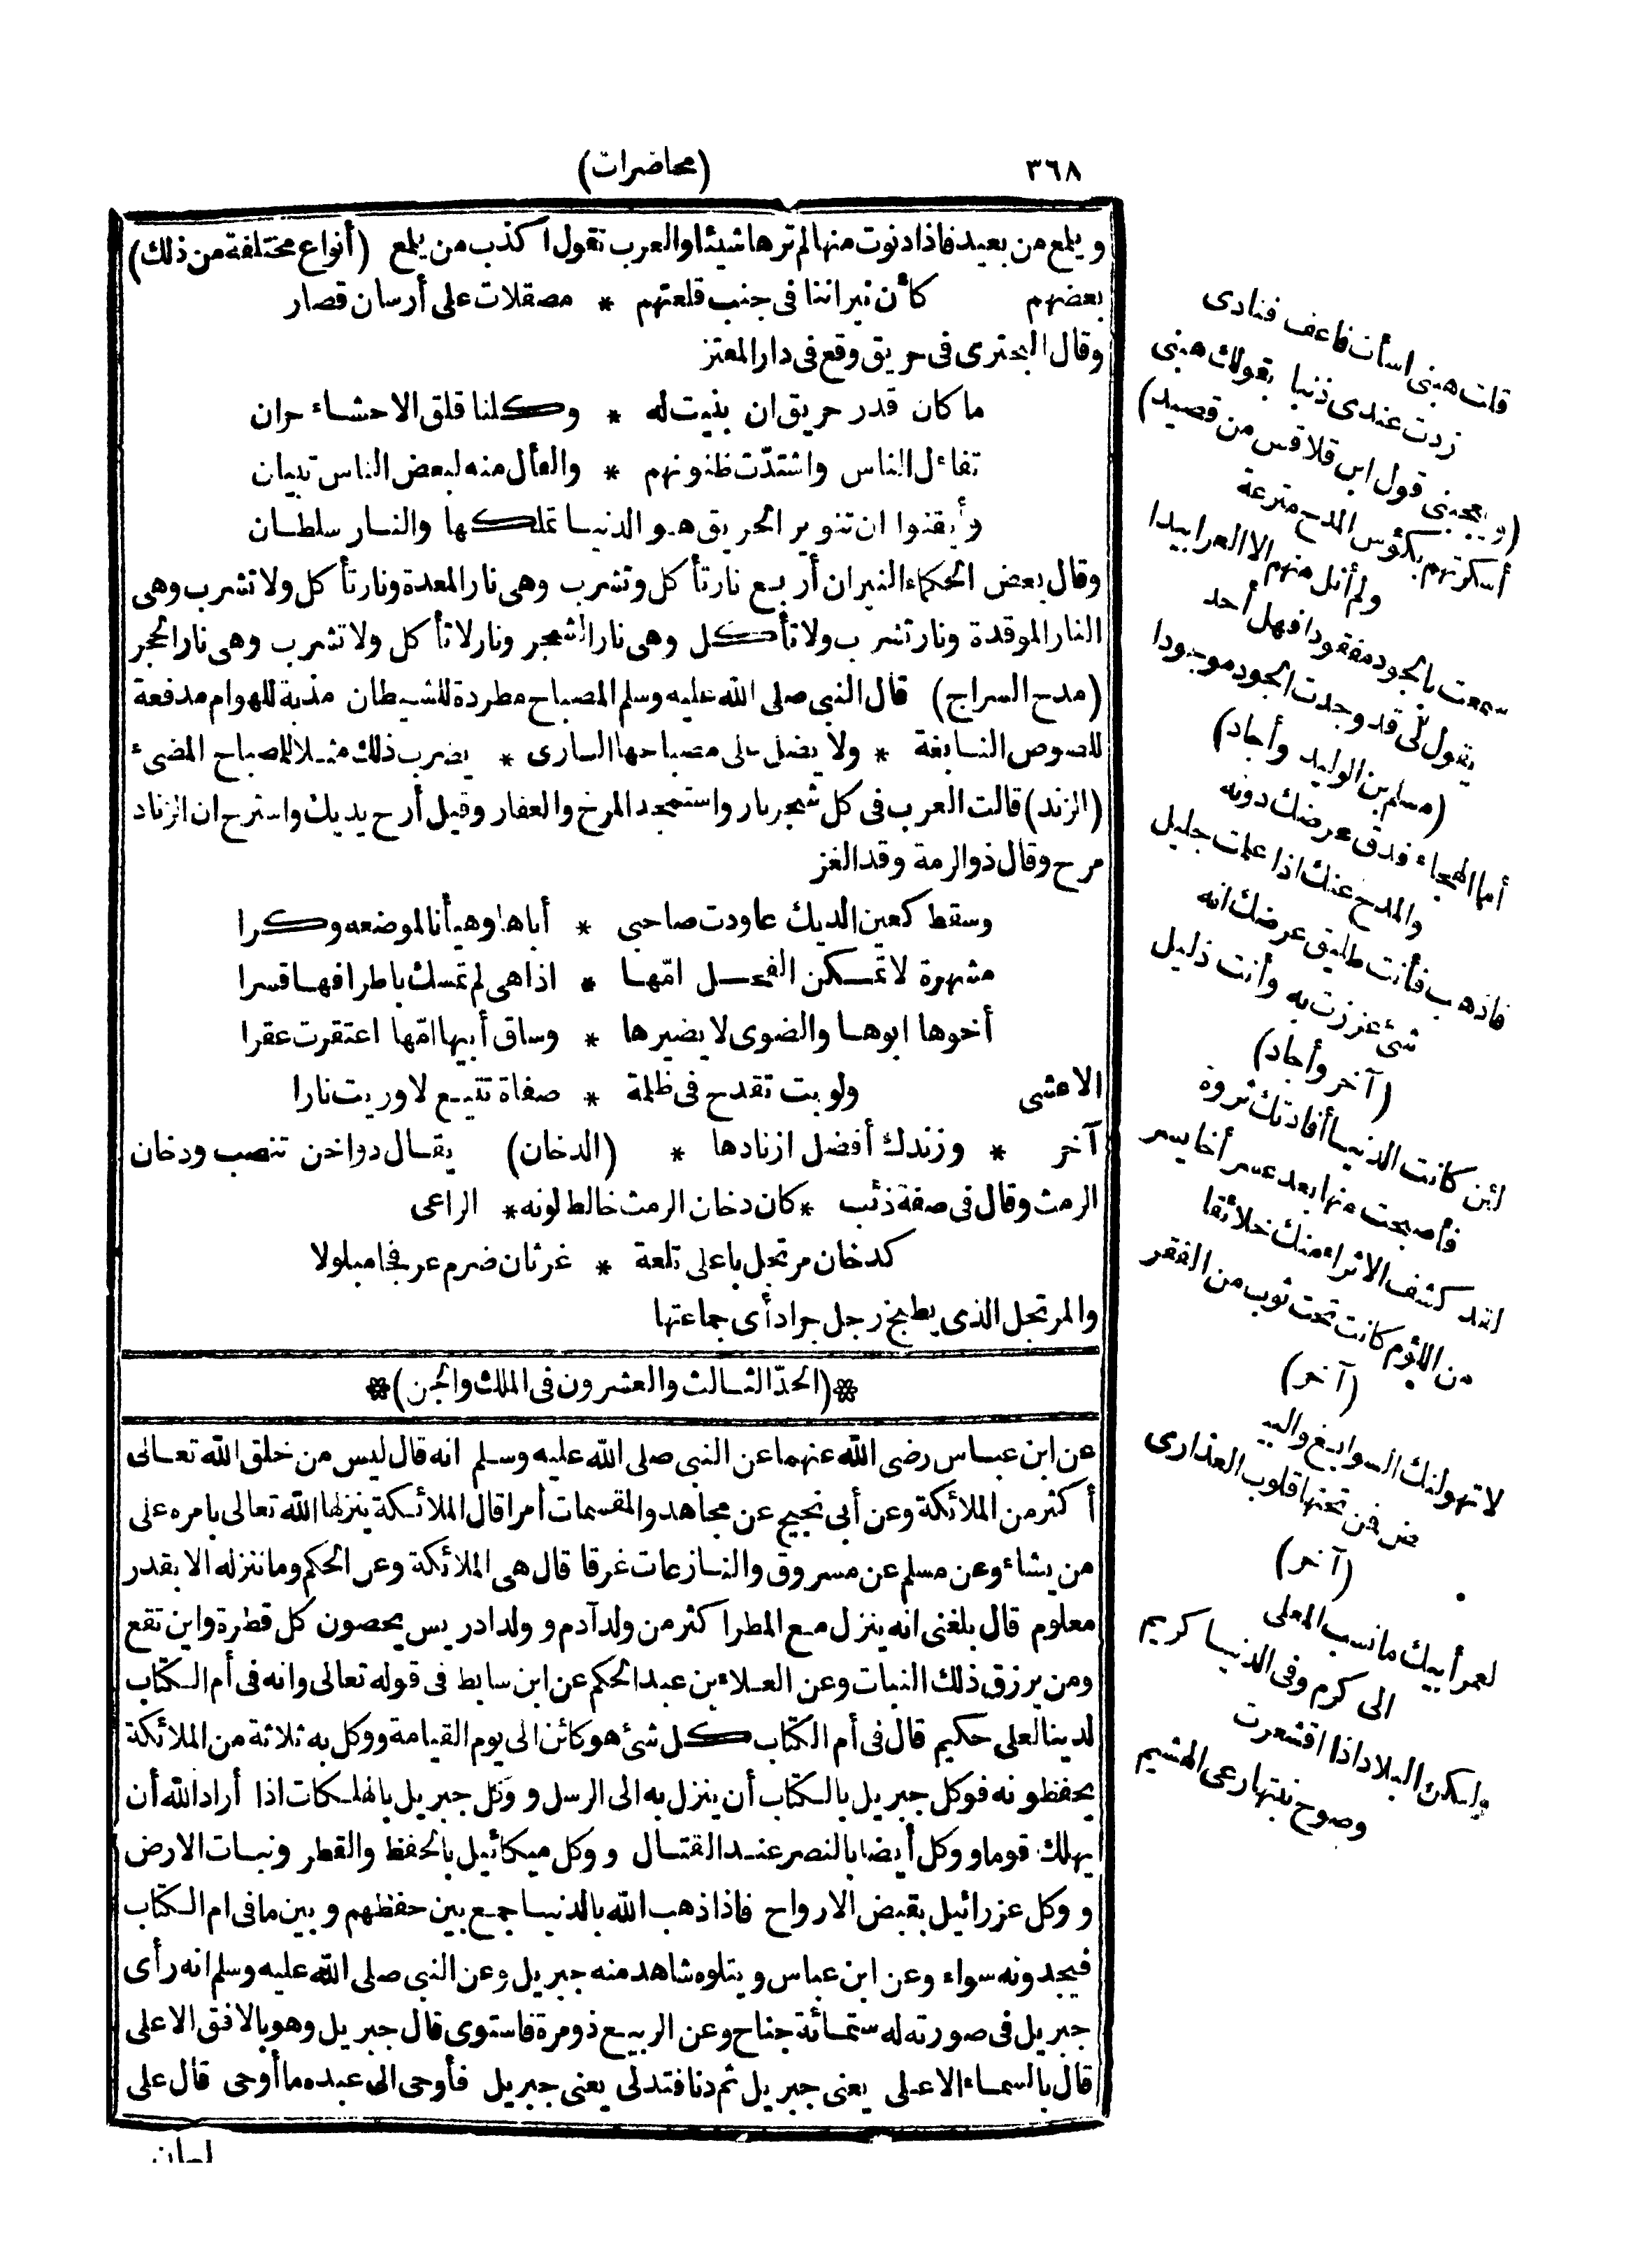 ٣٦٨
(محاضرات)
ويلمع من بعيد فاذا دنوت منها لم ترها شيئا والعرب تقول اكذب من يلمع (أنواع مختلفة من ذلك)
بعضهم كأن نيراننا فى جنب قلعتهم * مصقلات على أرسان قصار
وقال البحترى فى حريق وقع فى دار المعتز
ما كان قدر حريق ان بنيت له * وكلنا قلق الاحشاء حران
تفاءل الناس واشتدّت ظنونهم * والفأل منه لبعض الناس تبيان
وأيقنوا ان تنوير الحريق هو الدنيا تملكها والنار سلطان
وقال بعض الحكماء النيران أربع نار تأكل وتشرب وهى نار المعدة ونار تأكل ولا تشرب وهى
النار الموقدة ونار تشرب ولا تأكل وهى نار الشجر ونار لا تأكل ولا تشرب وهى نار الحجر
(مدح السراج) قال النبى صلى الله عليه وسلم المصباح مطردة للشيطان مذبة للهوام مدفعة
للصوص النابغة * ولا يضل على مصباحها السارى * يضرب ذلك مثلا للمصباح المضىء
(الزند) قالت العرب فى كل شجر نار واستمجد المرخ والعفار وقيل أرح يديك واسترح ان الزناد
مرح وقال ذو الرمة وقد الغز
وسقط كعين الديك عاودت صاحبى * أباها وهيأنا لموضعه وكرا
مشهرة لا تمكن الفحل امّها * اذا هى لم تمسك باطرافها قسرا
أخوها ابوها والضوى لا يضيرها * وساق أبيها امّها اعتقرت عقرا
الاعشى ولو بت تقدح فى ظلمة * صفاة تنبع لاوريت نارا
آخر * وزندك أفضل ازنادها * (الدخان) يقال دواخن تنصب ودخان
الرمث وقال فى صفة ذئب * كان دخان الرمث خالط لونه * الراعى
كدخان مرتجل باعلى تلعة * غرثان ضرم عرفجا مبلولا
والمرتجل الذى يطبخ رجل جراد أى جماعتها
*(الحدّ الثالث والعشرون فى الملك والجن)*
عن ابن عباس رضى الله عنهما عن النبى صلى الله عليه وسلم انه قال ليس من خلق الله تعالى
أكثر من الملائكة وعن أبى نجيح عن مجاهد والمقسمات أمرا قال الملائكة ينزلها الله تعالى بامره على
من يشاء وعن مسلم عن مسروق والنازعات غرقا قال هى الملائكة وعن الحكم وما ننزله الا بقدر
معلوم قال بلغنى انه ينزل مع المطر اكثر من ولد آدم وولد ادريس يحصون كل قطرة واين تقع
ومن يرزق ذلك النبات وعن العلاء بن عبد الحكم عن ابن سابط فى قوله تعالى وانه فى أم الكتاب
لدينا لعلى حكيم قال فى أم الكتاب كل شئ هو كائن الى يوم القيامة ووكل به ثلاثة من الملائكة
يحفظونه فوكل جبريل بالكتاب أن ينزل به الى الرسل ووكل جبريل بالهلكات اذا أراد الله أن
يهلك قوما ووكل أيضا بالنصر عند القتال ووكل ميكائيل بالحفظ والقطر ونبات الارض
ووكل عزرائيل بقبض الارواح فاذا ذهب الله بالدنيا جمع بين حفظهم وبين ما فى ام الكتاب
فيجدونه سواء وعن ابن عباس ويتلوه شاهد منه جبريل وعن النبى صلى الله عليه وسلم انه رأى
جبريل فى صورته له ستمائة جناح وعن الربيع ذو مرة فاستوى قال جبريل وهو بالافق الاعلى
قال بالسماء الاعلى يعنى جبريل ثم دنا فتدلى يعنى جبريل فأوحى الى عبده ما أوحى قال على
قلت هبنى اسأت فاعف فنادى
زدت عندى ذنبا بقولك هبنى
(ويعجبنى قول ابن قلاقس من قصيد)
أسكرتهم بكؤس المدح مترعة
ولم أنل منهم الا العرابيدا
سمعت بالجود مفقودا فهل أحد
يقول لى قد وجدت الجود موجودا
(مسلم بن الوليد وأجاد)
أما الهجاء فدق عرضك دونه
والمدح عنك اذا علمت جليل
فاذهب فأنت طليق عرضك انه
شئ عززت به وأنت ذليل
(آخر وأجاد)
لئن كانت الدنيا أفادتك ثروة
فأصبحت منها بعد عسر أخا يسر
لقد كشف الاثراء منك خلائقا
من اللؤم كانت تحت ثوب من الفقر
(آخر)
لا تهولنك السوابغ والبيـ
ـض فمن تحتها قلوب العذارى
(آخر)
لعمر أبيك ما نسب المعلى
الى كرم وفى الدنيا كريم
ولكن البلاد اذا اقشعرت
وصوح نبتها رعى الهشيم